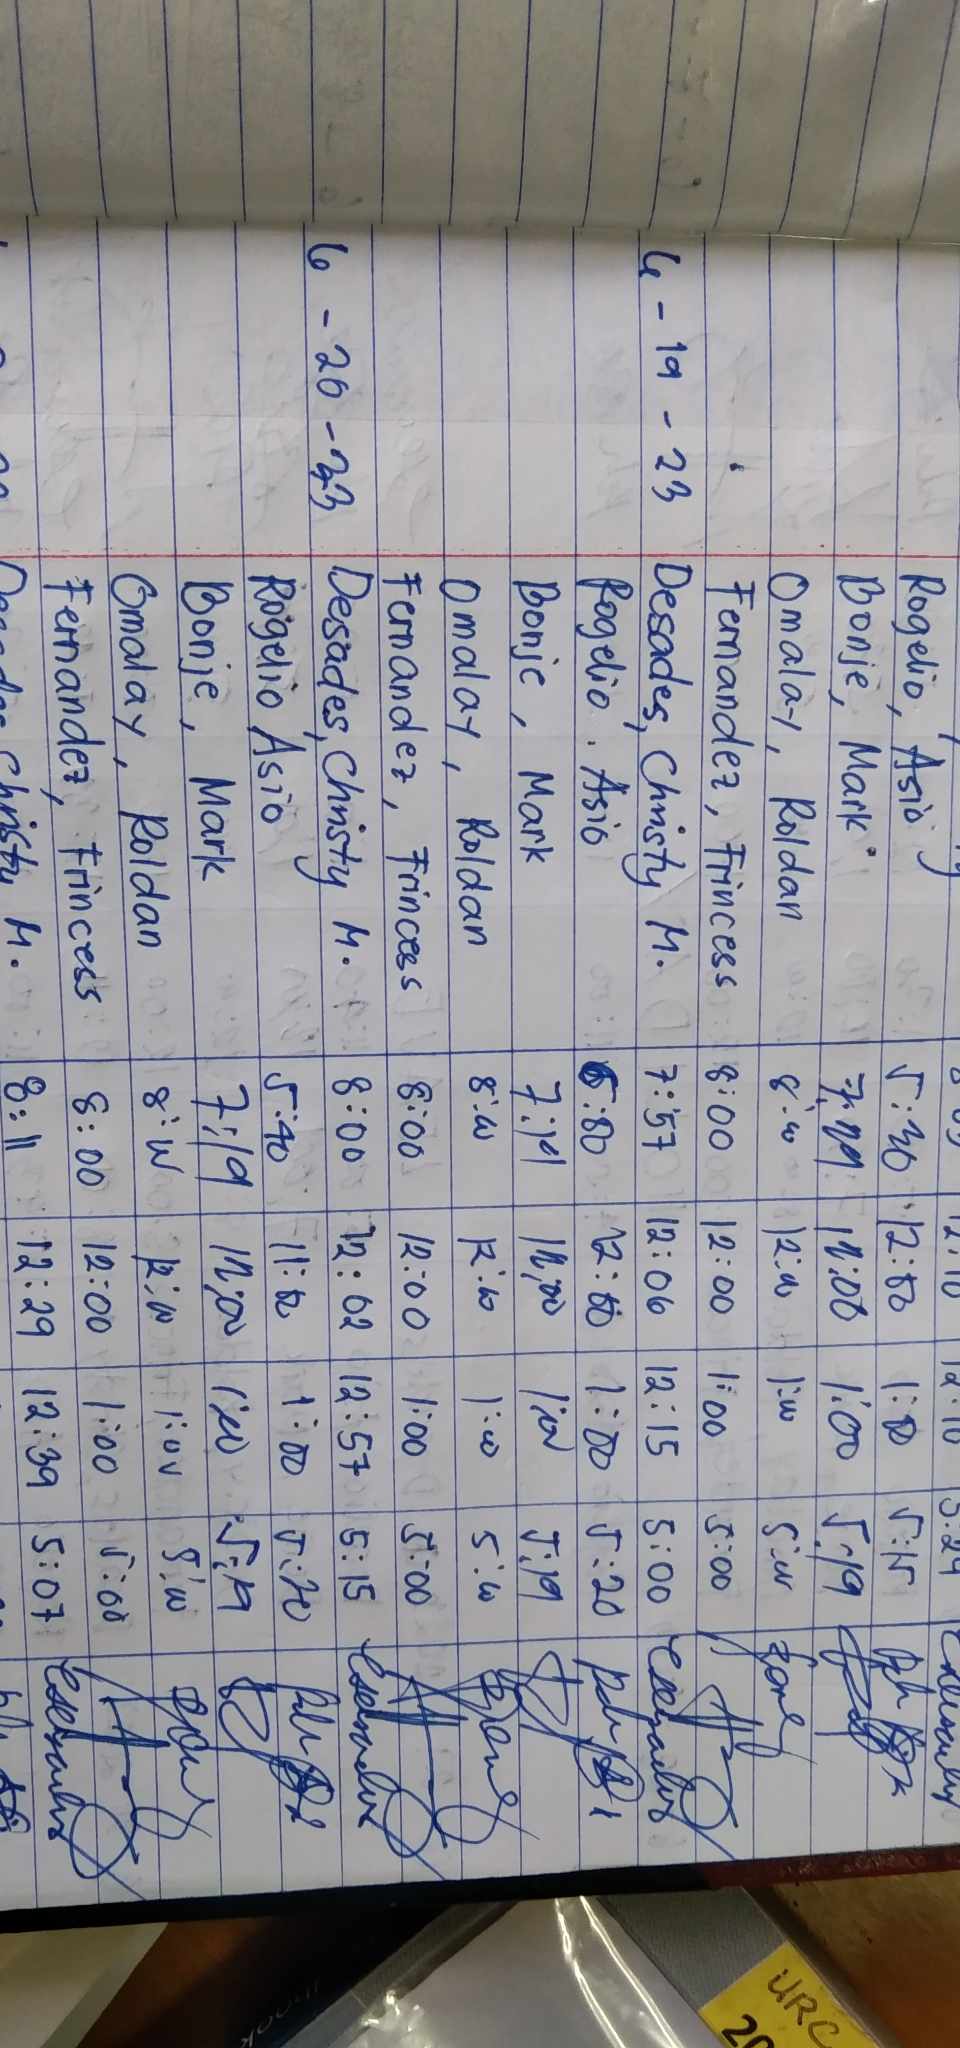 12:10 12:10 5:24
Rogelio, Asio 5:30 12:00 1:00 5:15
Bonje, Mark 7:19 12:00 1:00 5:19
Omalay, Roldan 8:00 12:00 1:00 5:00
Fernandez, Frincess 8:00 12:00 1:00 5:00
6-19-23 Desades, Christy M. 7:57 12:06 12:15 5:00
Rogelio. Asio 12:00 1:00 5:20
Bonje, Mark 7:19 12:00 1:00 5:19
Omalay, Roldan 8:00 12:00 1:00 5:00
Fernandez, Frincess 8:00 12:00 1:00 5:00
6-20-23 Desades, Christy M. 8:00 12:02 12:57 5:15
Rogelio Asio 5:40 1:00
Bonje, Mark 7:19 12:00 1:00 5:19
Omalay, Roldan 8:00 12:00 1:00 5:00
Fernandez, Frincess 8:00 12:00 1:00 5:00
Desades, Christy M. 8:11 12:29 12:39 5:07
URC